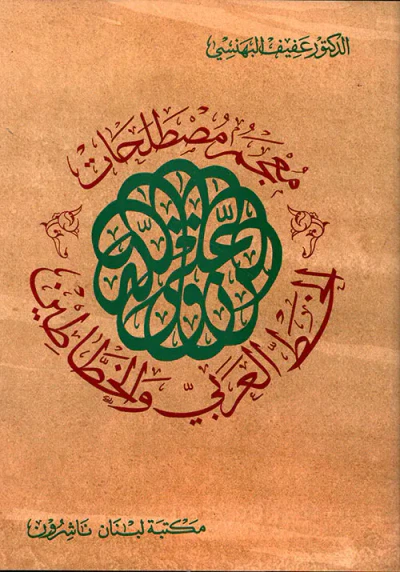 الدكتور عفيف البهنسي
معجم مصطلحات
الخط العربي والخطاطين
مكتبة لبنان ناشرون